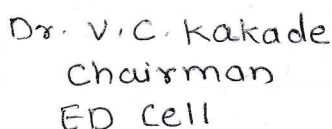 Dr. V. C. Kakade
Chairman
ED Cell